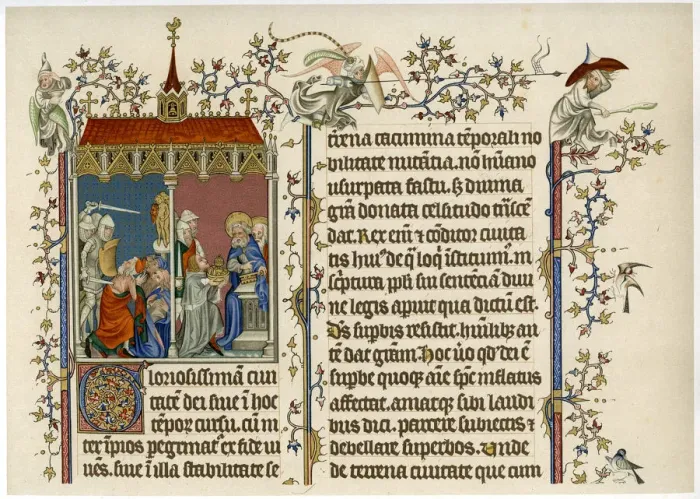 Gloriosissimã ciui
tatẽ dei siue ĩ hoc
tẽpoꝝ cursu. cũ ĩ
ter ĩpios pegrinat᷑ ex fide ui
uẽs. siue ĩ illa stabilitate se
tẽrena cacumina tẽporali mo
bilitate nutantia. nõ hũano
usurpata fastu. sꝫ diuina
grã donata celsitudo trãscẽ
dat. Rex em̃ & cõditor ciuita
tis huiꝰ de q̃ loq̃ ĩstituimꝰ. ĩ
scͥptura ppłi sui sentenciã diui
ne legis aperuit qua dictũ est.
Dˢ supbis resistit. hũilibꝫ au
tẽ dat grãm. Hoc ůo qd̓ dei ẽ
supbe quoqꝫ aĩe spũs ĩflatus
affectat. amatqꝫ sibi laudi
bus dici. parcere subiectis &
debellare superbos. Unde
de terrena ciuitate que cum